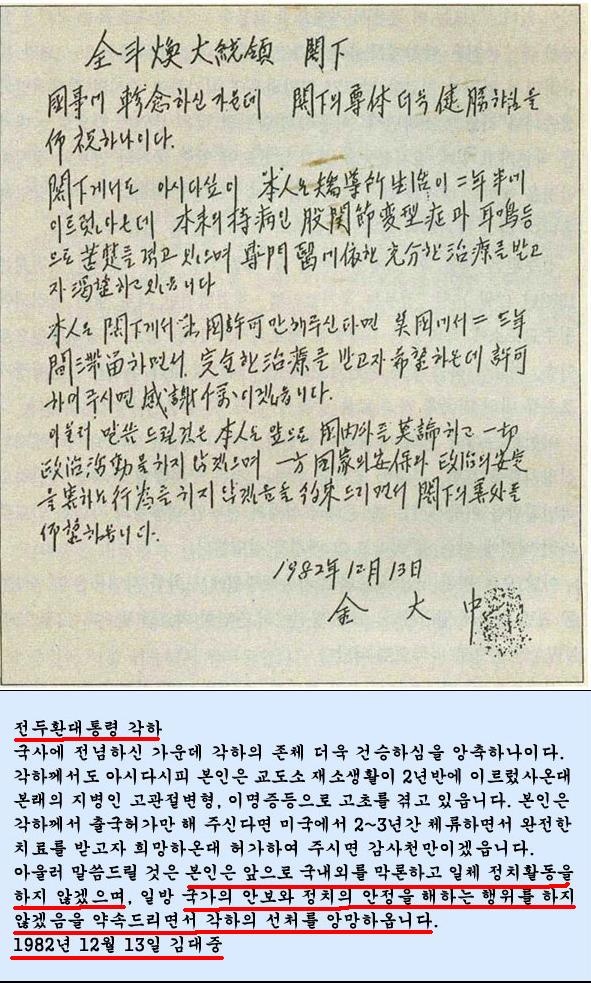 全斗煥大統領 閣下
國事에 軫念하신 가운데 閣下의 尊体 더욱 健勝하심을
仰祝하나이다.
閣下께서도 아시다싶이 本人은 矯導所 生活이 二年半에
이르렀아온데 本来의 持病인 股關節変型症과 耳鳴等
으로 苦楚를 겪고 있으며 專門醫에 依한 充分한 治療를 받고
자 渴望하고 있읍니다
本人은 閣下께서 出國許可만 해주신다면 美國에서 二 三年
間 滯留하면서 完全한 治療를 받고자 希望하온데 許可
하여 주시면 感謝千萬이겠읍니다.
아울러 말씀 드릴것은 本人은 앞으로 國内外를 莫論하고 一切
政治活動을 하지 않겠으며 一方 国家의 安保와 政治의 安定
을 害하는 行為를 하지 않겠음을 約束드리면서 閣下의 善處를
仰望하옵니다.
1982年 12月 13日
金 大 中
전두환대통령 각하
국사에 전념하신 가운데 각하의 존체 더욱 건승하심을 앙축하나이다.
각하께서도 아시다시피 본인은 교도소 재소생활이 2년반에 이르렀사온대
본래의 지병인 고관절변형, 이명증등으로 고초를 겪고 있읍니다. 본인은
각하께서 출국허가만 해 주신다면 미국에서 2~3년간 체류하면서 완전한
치료를 받고자 희망하온대 허가하여 주시면 감사천만이겠읍니다.
아울러 말씀드릴 것은 본인은 앞으로 국내외를 막론하고 일체 정치활동을
하지 않겠으며, 일방 국가의 안보와 정치의 안정을 해하는 행위를 하지
않겠음을 약속드리면서 각하의 선처를 앙망하옵니다.
1982년 12월 13일 김대중